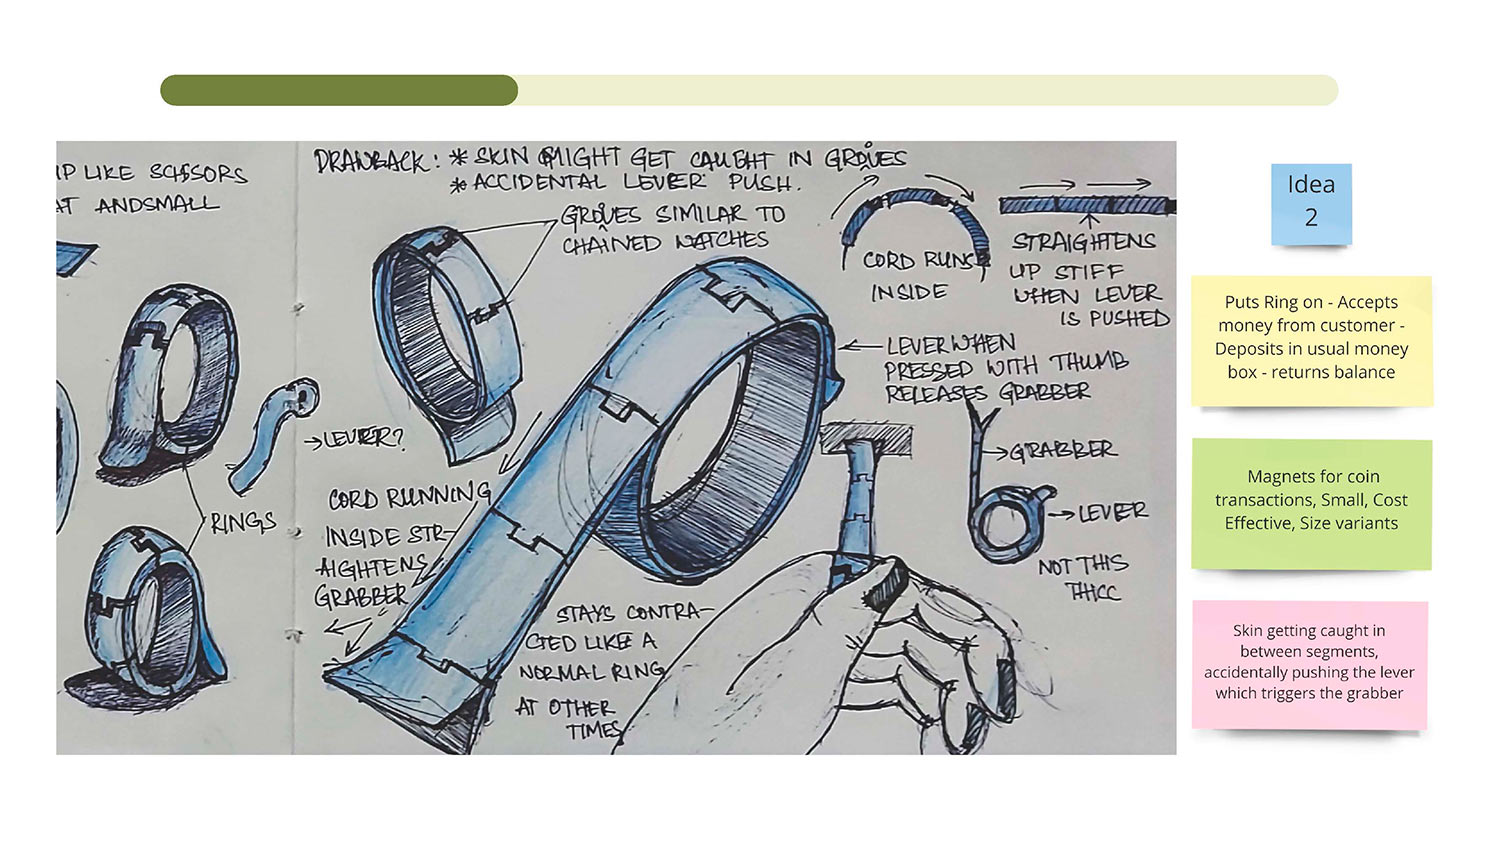 IP LIKE SCISSORS
AT ANDSMALL
LEVER?
RINGS
DRAWBACK: * SKIN MIGHT GET CAUGHT IN GROVES
* ACCIDENTAL LEVER PUSH.
GROVES SIMILAR TO
CHAINED WATCHES
CORD RUNS
INSIDE
STRAIGHTENS
UP STIFF
WHEN LEVER
IS PUSHED
LEVER WHEN
PRESSED WITH THUMB
RELEASES GRABBER
GRABBER
LEVER
NOT THIS
THICC
CORD RUNNING
INSIDE STR-
AIGHTENS
GRABBER
STAYS CONTRA-
CTED LIKE A
NORMAL RING
AT OTHER
TIMES
Idea
2
Puts Ring on - Accepts
money from customer -
Deposits in usual money
box - returns balance
Magnets for coin
transactions, Small, Cost
Effective, Size variants
Skin getting caught in
between segments,
accidentally pushing the lever
which triggers the grabber